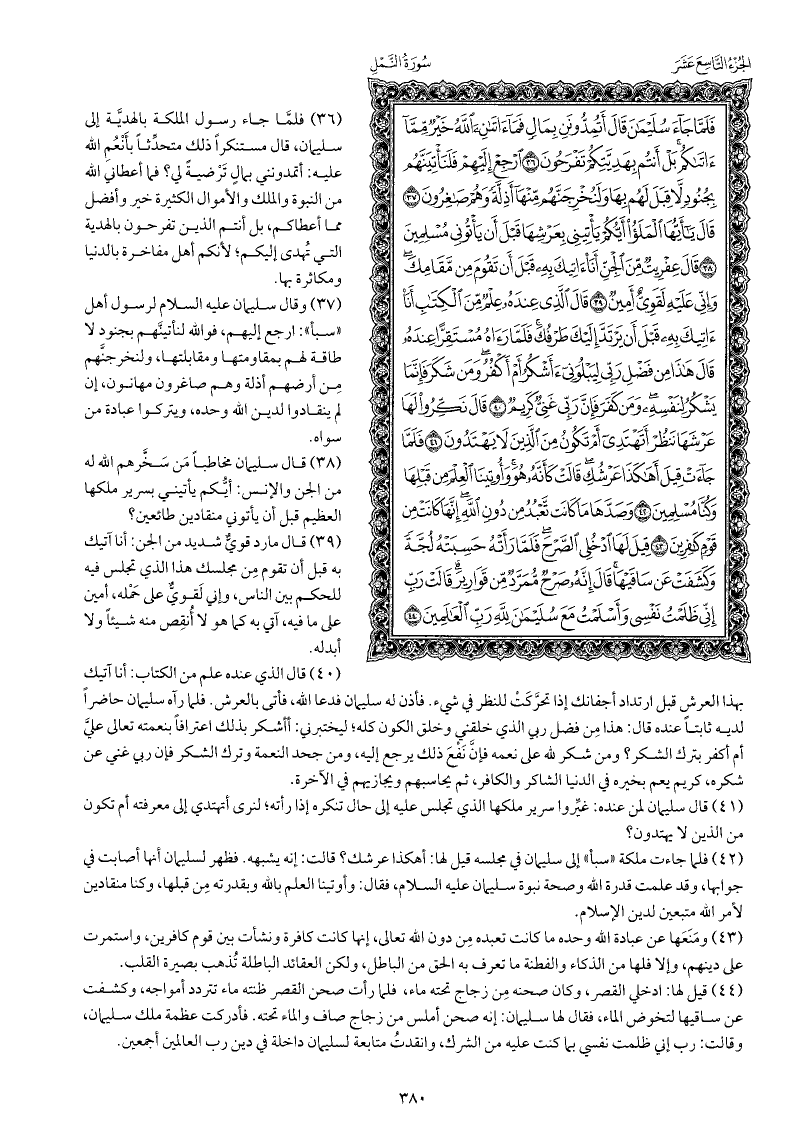 الجزء التاسع عشر
سورة النمل
فَلَمَّا جَآءَ سُلَيْمَٰنَ قَالَ أَتُمِدُّونَنِ بِمَالٍ فَمَآ ءَاتَىٰنِۦَ ٱللَّهُ خَيْرٌ مِّمَّآ
ءَاتَىٰكُم بَلْ أَنتُم بِهَدِيَّتِكُمْ تَفْرَحُونَ ٣٦ ٱرْجِعْ إِلَيْهِمْ فَلَنَأْتِيَنَّهُم
بِجُنُودٍ لَّا قِبَلَ لَهُم بِهَا وَلَنُخْرِجَنَّهُم مِّنْهَآ أَذِلَّةً وَهُمْ صَٰغِرُونَ ٣٧
قَالَ يَٰٓأَيُّهَا ٱلْمَلَؤُا۟ أَيُّكُمْ يَأْتِينِى بِعَرْشِهَا قَبْلَ أَن يَأْتُونِى مُسْلِمِينَ
٣٨ قَالَ عِفْرِيتٌ مِّنَ ٱلْجِنِّ أَنَا۠ ءَاتِيكَ بِهِۦ قَبْلَ أَن تَقُومَ مِن مَّقَامِكَ
وَإِنِّى عَلَيْهِ لَقَوِىٌّ أَمِينٌ ٣٩ قَالَ ٱلَّذِى عِندَهُۥ عِلْمٌ مِّنَ ٱلْكِتَٰبِ أَنَا۠
ءَاتِيكَ بِهِۦ قَبْلَ أَن يَرْتَدَّ إِلَيْكَ طَرْفُكَ فَلَمَّا رَءَاهُ مُسْتَقِرًّا عِندَهُۥ
قَالَ هَٰذَا مِن فَضْلِ رَبِّى لِيَبْلُوَنِىٓ ءَأَشْكُرُ أَمْ أَكْفُرُ وَمَن شَكَرَ فَإِنَّمَا
يَشْكُرُ لِنَفْسِهِۦ وَمَن كَفَرَ فَإِنَّ رَبِّى غَنِىٌّ كَرِيمٌ ٤٠ قَالَ نَكِّرُوا۟ لَهَا
عَرْشَهَا نَنظُرْ أَتَهْتَدِىٓ أَمْ تَكُونُ مِنَ ٱلَّذِينَ لَا يَهْتَدُونَ ٤١ فَلَمَّا
جَآءَتْ قِيلَ أَهَٰكَذَا عَرْشُكِ قَالَتْ كَأَنَّهُۥ هُوَ وَأُوتِينَا ٱلْعِلْمَ مِن قَبْلِهَا
وَكُنَّا مُسْلِمِينَ ٤٢ وَصَدَّهَا مَا كَانَت تَّعْبُدُ مِن دُونِ ٱللَّهِ إِنَّهَا كَانَتْ مِن
قَوْمٍ كَٰفِرِينَ ٤٣ قِيلَ لَهَا ٱدْخُلِى ٱلصَّرْحَ فَلَمَّا رَأَتْهُ حَسِبَتْهُ لُجَّةً
وَكَشَفَتْ عَن سَاقَيْهَا قَالَ إِنَّهُۥ صَرْحٌ مُّمَرَّدٌ مِّن قَوَارِيرَ قَالَتْ رَبِّ
إِنِّى ظَلَمْتُ نَفْسِى وَأَسْلَمْتُ مَعَ سُلَيْمَٰنَ لِلَّهِ رَبِّ ٱلْعَٰلَمِينَ ٤٤
(٣٦) فلمَّا جاء رسول الملكة بالهديَّة إلى
سليمان، قال مستنكراً ذلك متحدِّثاً بأَنْعُمِ الله
عليه: أتمدونني بمالٍ تَرْضيةً لي؟ فما أعطاني الله
من النبوة والملك والأموال الكثيرة خير وأفضل
مما أعطاكم، بل أنتم الذين تفرحون بالهدية
التي تُهدى إليكم؛ لأنكم أهل مفاخرة بالدنيا
ومكاثرة بها.
(٣٧) وقال سليمان عليه السلام لرسول أهل
«سبأ»: ارجع إليهم، فوالله لنأتينَّهم بجنود لا
طاقة لهم بمقاومتها ومقابلتها، ولنخرجنَّهم
مِن أرضهم أذلة وهم صاغرون مهانون، إن
لم ينقادوا لدين الله وحده، ويتركوا عبادة من
سواه.
(٣٨) قال سليمان مخاطباً مَن سَخَّرهم الله له
من الجن والإنس: أيُّكم يأتيني بسرير ملكها
العظيم قبل أن يأتوني منقادين طائعين؟
(٣٩) قال مارد قويٌّ شديد من الجن: أنا آتيك
به قبل أن تقوم مِن مجلسك هذا الذي تجلس فيه
للحكم بين الناس، وإني لَقويٌّ على حَمْله، أمين
على ما فيه، آتي به كما هو لا أُنقِص منه شيئاً ولا
أبدله.
(٤٠) قال الذي عنده علم من الكتاب: أنا آتيك
بهذا العرش قبل ارتداد أجفانك إذا تحرَّكَتْ للنظر في شيء. فأذن له سليمان فدعا الله، فأتى بالعرش. فلما رآه سليمان حاضراً
لديه ثابتاً عنده قال: هذا مِن فضل ربي الذي خلقني وخلق الكون كله؛ ليختبرني: أأشكر بذلك اعترافاً بنعمته تعالى عليَّ
أم أكفر بترك الشكر؟ ومن شكر لله على نعمه فإنَّ نَفْعَ ذلك يرجع إليه، ومن جحد النعمة وترك الشكر فإن ربي غني عن
شكره، كريم يعم بخيره في الدنيا الشاكر والكافر، ثم يحاسبهم ويجازيهم في الآخرة.
(٤١) قال سليمان لمن عنده: غيِّروا سرير ملكها الذي تجلس عليه إلى حال تنكره إذا رأته؛ لنرى أتهتدي إلى معرفته أم تكون
من الذين لا يهتدون؟
(٤٢) فلما جاءت ملكة «سبأ» إلى سليمان في مجلسه قيل لها: أهكذا عرشك؟ قالت: إنه يشبهه. فظهر لسليمان أنها أصابت في
جوابها، وقد علمت قدرة الله وصحة نبوة سليمان عليه السلام، فقال: وأوتينا العلم بالله وبقدرته مِن قبلها، وكنا منقادين
لأمر الله متبعين لدين الإسلام.
(٤٣) ومَنَعَها عن عبادة الله وحده ما كانت تعبده مِن دون الله تعالى، إنها كانت كافرة ونشأت بين قوم كافرين، واستمرت
على دينهم، وإلا فلها من الذكاء والفطنة ما تعرف به الحق من الباطل، ولكن العقائد الباطلة تُذهب بصيرة القلب.
(٤٤) قيل لها: ادخلي القصر، وكان صحنه مِن زجاج تحته ماء، فلما رأت صحن القصر ظنته ماء تتردد أمواجه، وكشفت
عن ساقيها لتخوض الماء، فقال لها سليمان: إنه صحن أملس من زجاج صاف والماء تحته. فأدركت عظمة ملك سليمان،
وقالت: رب إني ظلمت نفسي بما كنت عليه من الشرك، وانقدتُ متابعة لسليمان داخلة في دين رب العالمين أجمعين.
٣٨٠